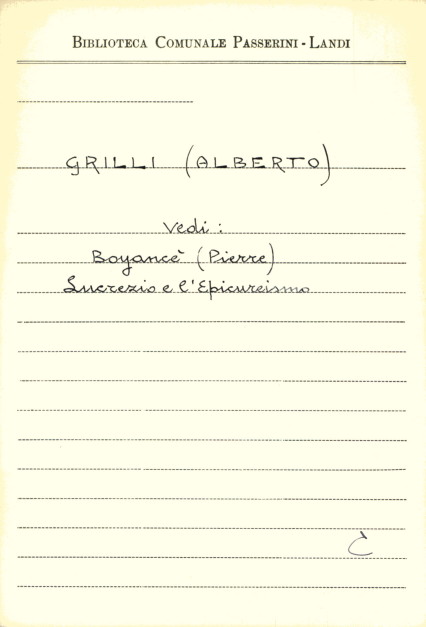 BIBLIOTECA COMUNALE PASSERINI - LANDI
GRILLI (ALBERTO)
Vedi :
Boyancè (Pierre)
Lucrezio e l'Epicureismo
C